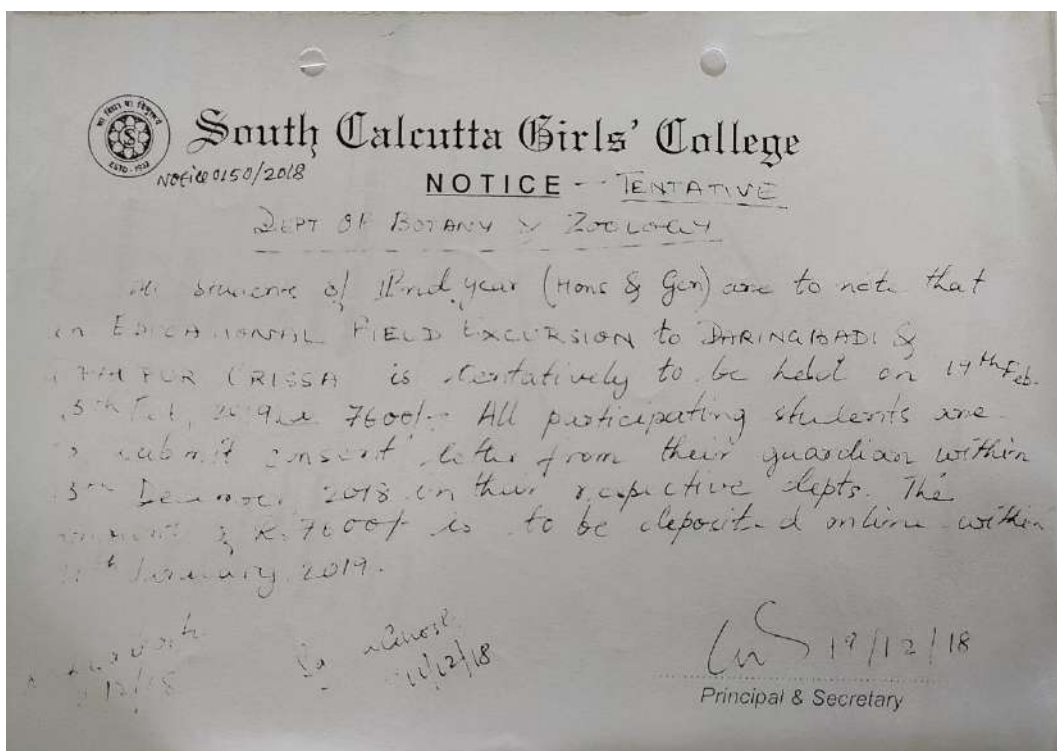 ESTD - 1932
South Calcutta Girls' College
Notice 0150/2018
NOTICE -- TENTATIVE
DEPT OF BOTANY & ZOOLOGY
students of IInd year (Hons & Gen) are to note that
EDUCATIONAL FIELD EXCURSION to DARINGBADI &
ORISSA is tentatively to be held on Feb.
2019 7600/- All participating students are
submit consent letter from their guardian within
December 2018 in their respective depts. The
7600/- is to be deposited online within
January 2019.
12/18
/12/18
/12/18
Principal & Secretary